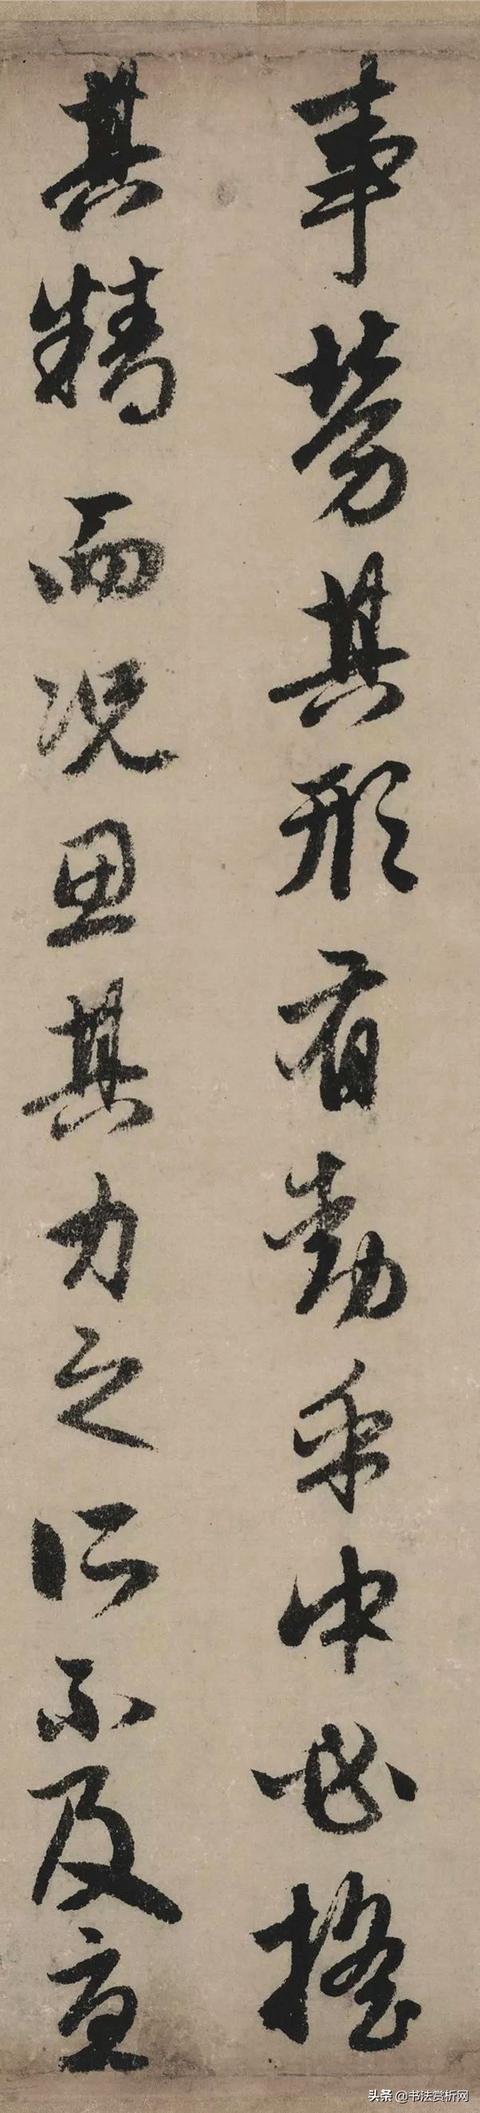 事劳其形有動乎中必摇
其精而况思其力之所不及宜
头条 @书法赏析网